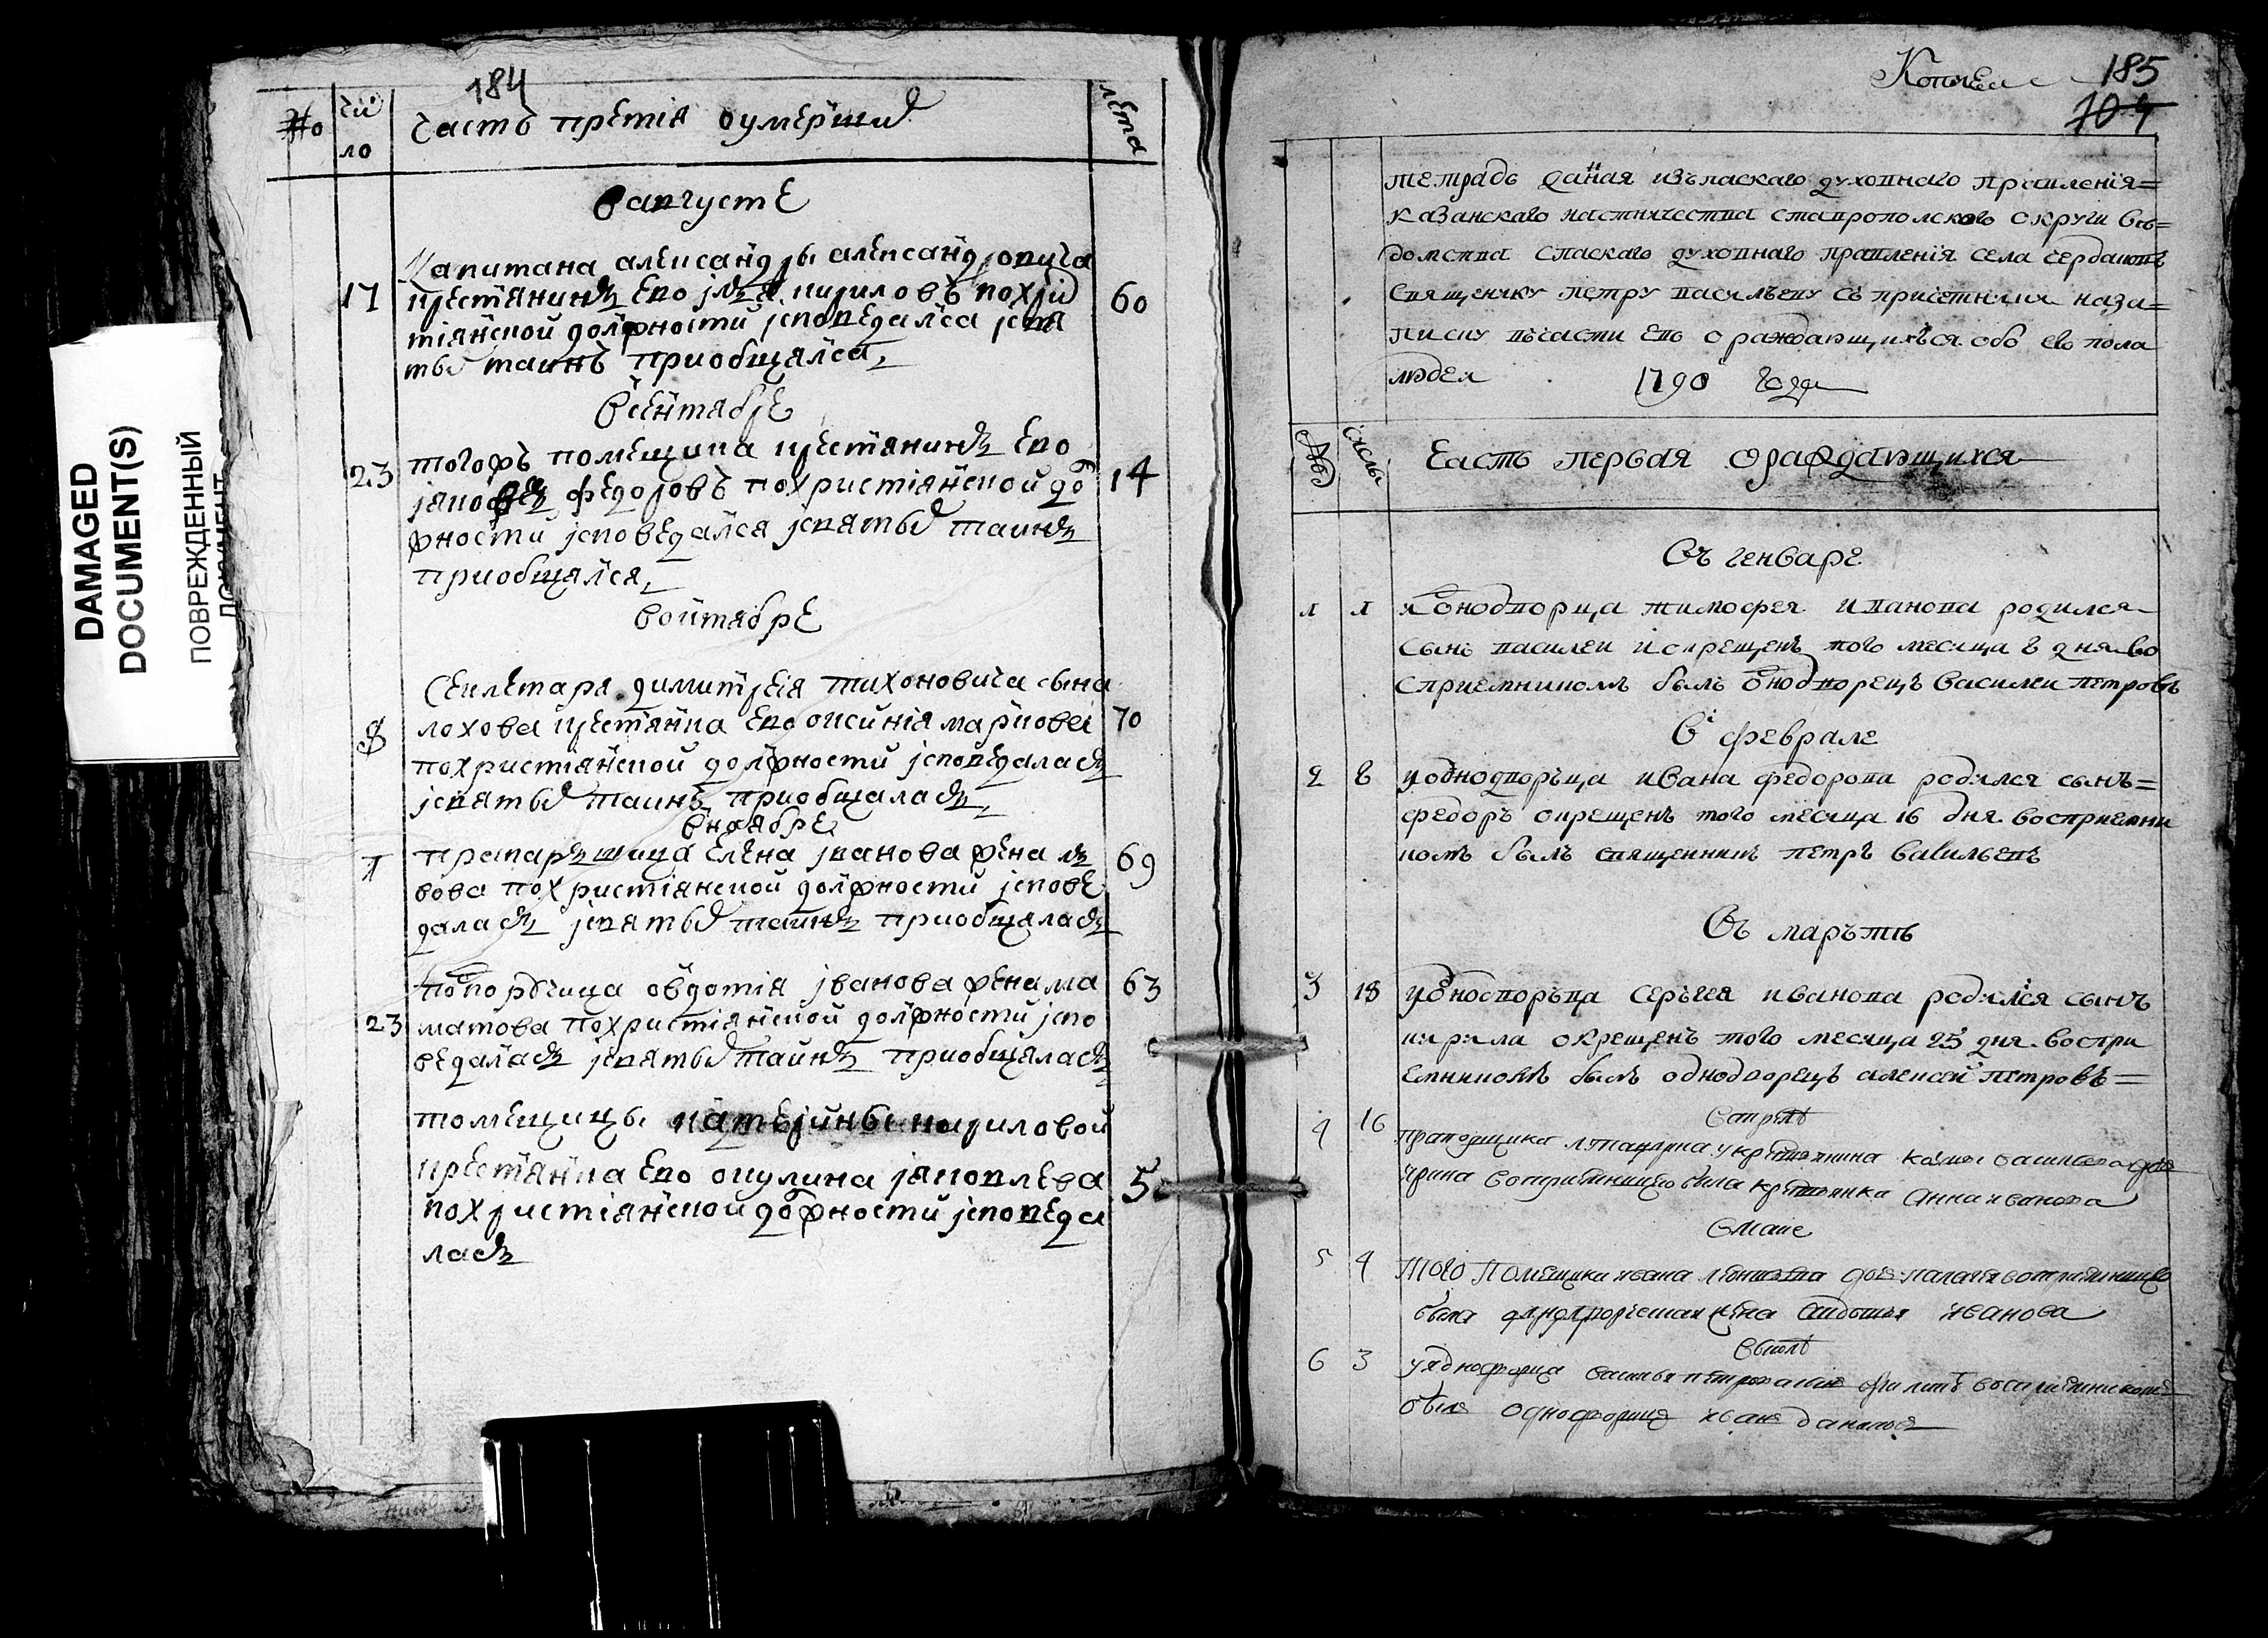 DAMAGED
DOCUMENT(S)
ПОВРЕЖДЕННЫЙ
ДОКУМЕНТ
184
№
чи
ло
часть третiя оумершихъ
лета
вавгусте
17 капитана алеѯандры алеѯандровича
крестянинъ ево кириловъ похрис
60
тiянской должности iсповедался iсвя
тыхъ таинъ приобщался
всентябре
23 тогожъ помещика крестянинъ ево
14
iяковъ федоровъ похристiянской дол
жности iсповедался iсвятыхъ таинъ
приобщался
воктябре
секлетаря димитрея тихоновича сына
8 крестянка ево
70
похристiянской должности iсповедалась
iсвятыхъ таинъ приобщалась
вноябре
прапарщица елена iванова жена
69
вова похристiянской должности iспове
далась iсвятыхъ таинъ приобщалась
овдотiя iванова жена ма
63
23 матова похристiянской должности iспо
ведалась iсвятыхъ таинъ приобщалась
помещицы катерины кириловой
крестянка ево окулина iяковлева
5
похристiянской должности iсповеда
лась
185
104
тетрадь даная изъ паскаго духовнаго правленiя=
казанскаго настничества ставропольского округи ве=
домства спаскаго духовнаго правленiя села
священику петру василъеву съ причетники назапи=
писку въчасти ево ораждающихъся обоево пола
людея 1790 года
№
числы
Часть первая ораждающихся
Въ генваре
1 1 уоднодворца тимофея иванова родился
сынъ василеи икрещенъ того месяца 8 дня во
сприемникомъ былъ однодворецъ василеи петровъ
В феврале
2 8 уоднодворъца ивана федорова родился сынъ=
федоръ окрещенъ того месяца 16 дня восприемни
комъ былъ священникъ петръ василъевъ
Въ маръте
3 18 уодноворъца серъгея иванова родился сынъ
кирила окрещенъ того месяца 25 дня воспри
емникомъ былъ однодворецъ алексей петровъ=
Вапреле
4 16 прапорщика укрестянина
ирина восприемницею была крестянка анна иванова
Вмаие
5 4 того помещика ивана пелагея восприемницею
была жена авдотья иванова
6 3 уоднодворца василья петрова восприемникомъ
былъ однодворецъ иванъ